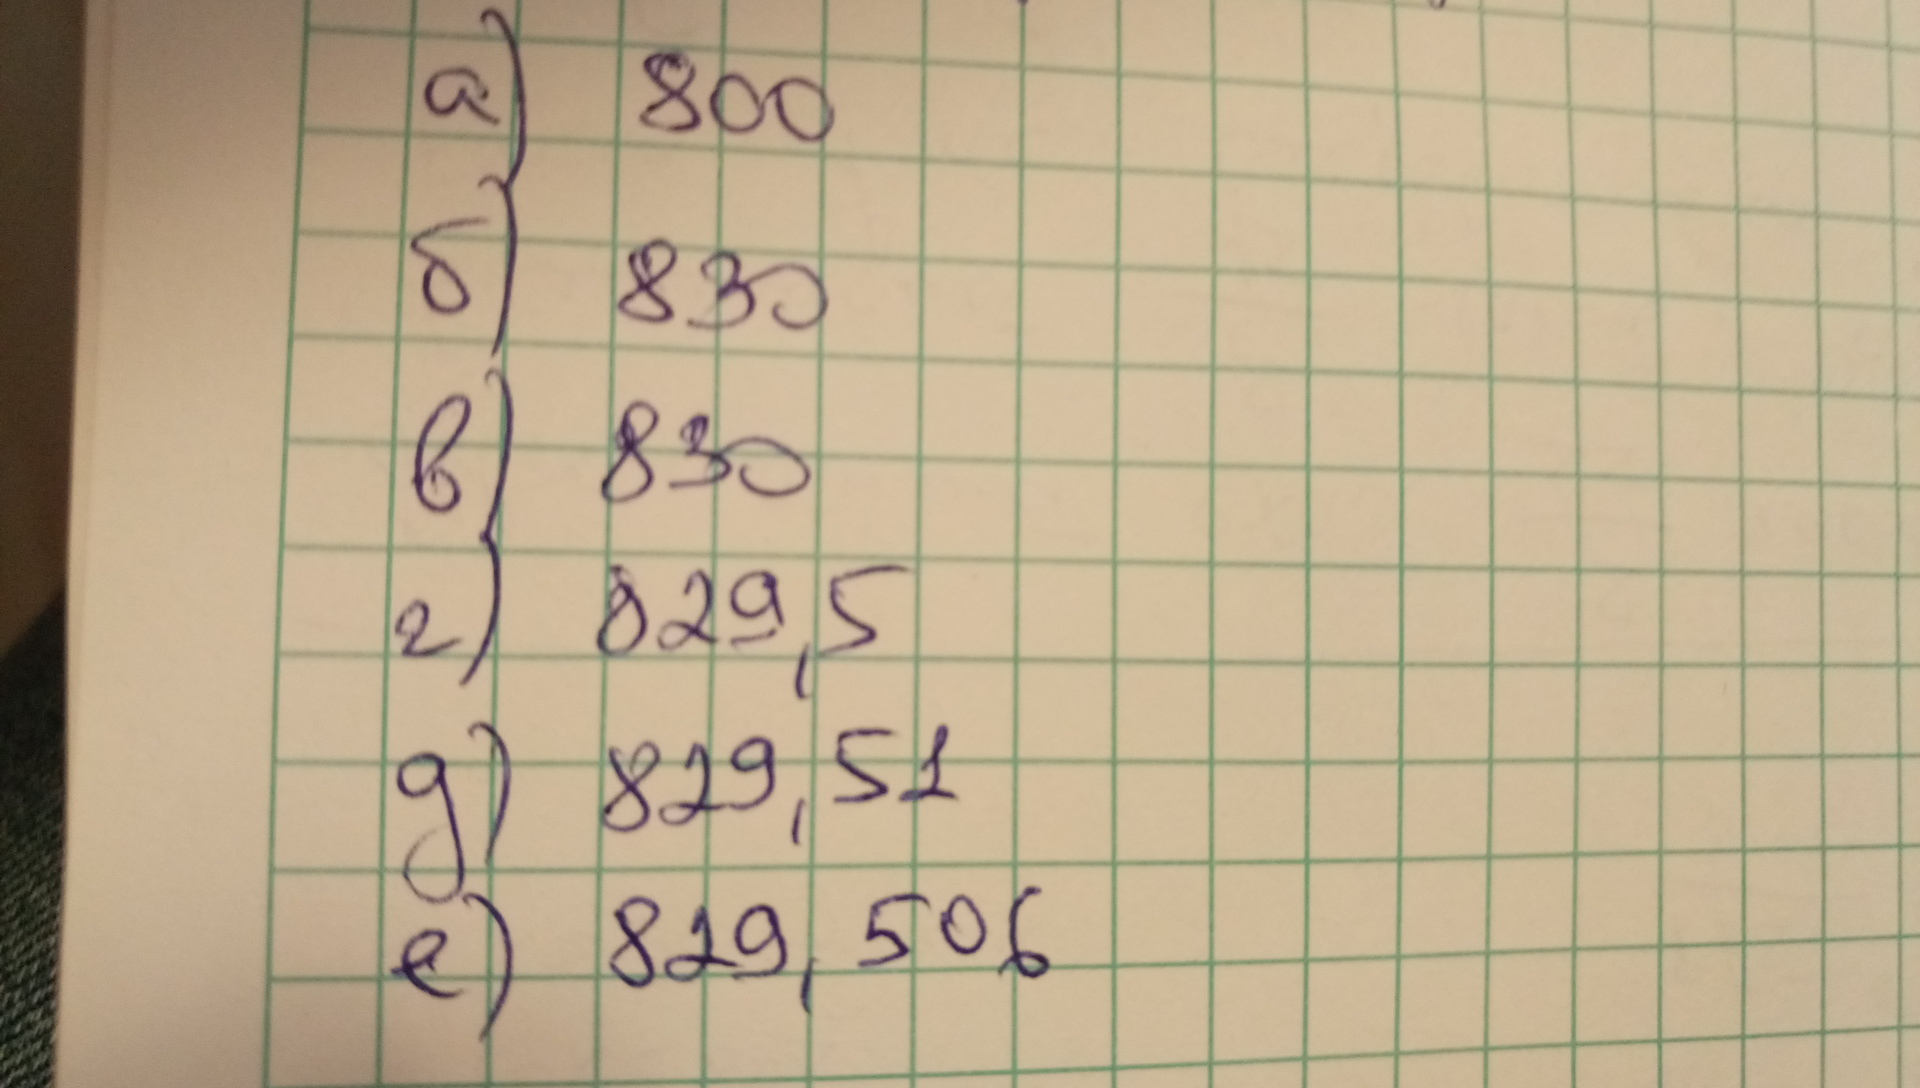 а) 800
б) 830
в) 830
г) 829,5
д) 829,51
е) 829,506